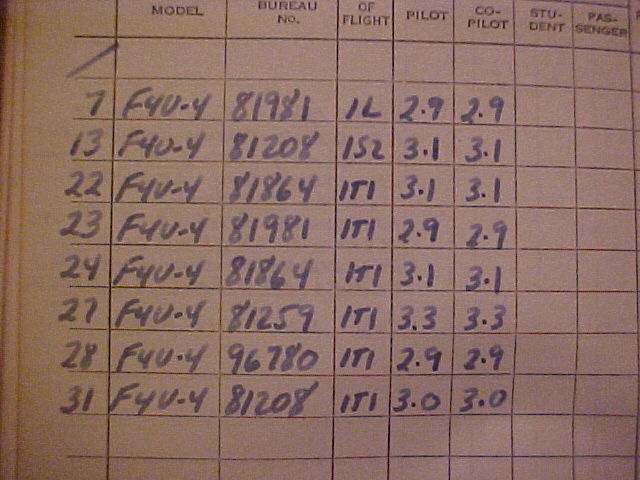 MODEL BUREAU No. OF FLIGHT PILOT CO-PILOT STU-DENT PAS-SENGER
7 F4U-4 81981 1L 2.9 2.9
13 F4U-4 81208 1S2 3.1 3.1
22 F4U-4 81864 1T1 3.1 3.1
23 F4U-4 81981 1T1 2.9 2.9
24 F4U-4 81864 1T1 3.1 3.1
27 F4U-4 81259 1T1 3.3 3.3
28 F4U-4 96780 1T1 2.9 2.9
31 F4U-4 81208 1T1 3.0 3.0